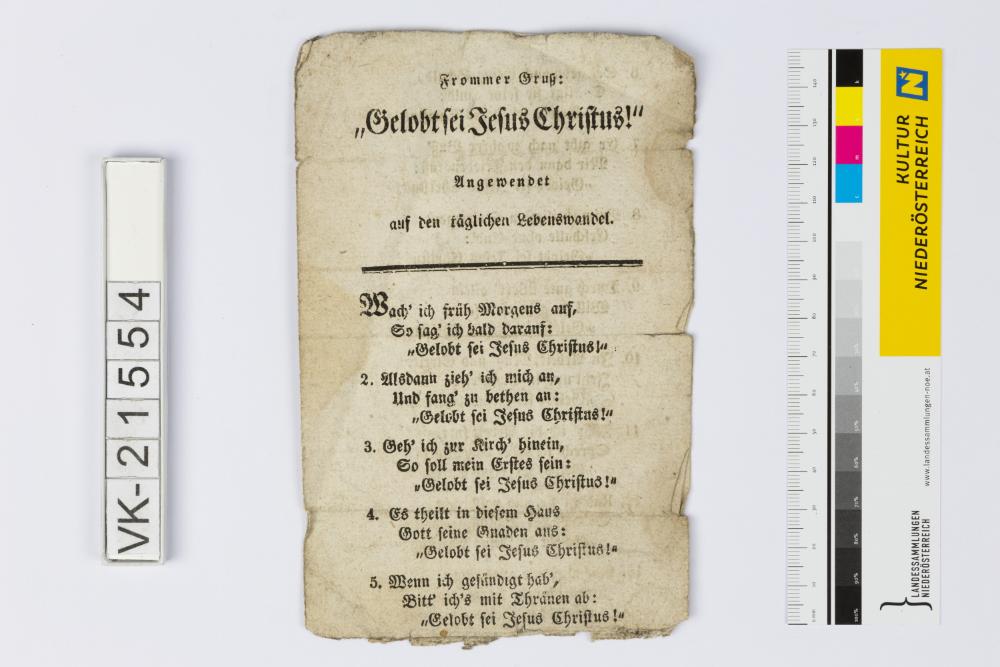 Frommer Gruß:
„Gelobt sei Jesus Christus!“
Angewendet
auf den täglichen Lebenswandel.
Wach' ich früh Morgens auf,
So sag' ich bald darauf:
„Gelobt sei Jesus Christus!“
2. Alsdann zieh' ich mich an,
Und fang' zu bethen an:
„Gelobt sei Jesus Christus!“
3. Geh' ich zur Kirch' hinein,
So soll mein Erstes sein:
„Gelobt sei Jesus Christus!“
4. Es theilt in diesem Haus
Gott seine Gnaden aus:
„Gelobt sei Jesus Christus!“
5. Wenn ich gesündigt hab',
Bitt' ich's mit Thränen ab:
„Gelobt sei Jesus Christus!“
VK-21554
KULTUR
NIEDERÖSTERREICH
www.landessammlungen-noe.at
LANDESSAMMLUNGEN
NIEDERÖSTERREICH